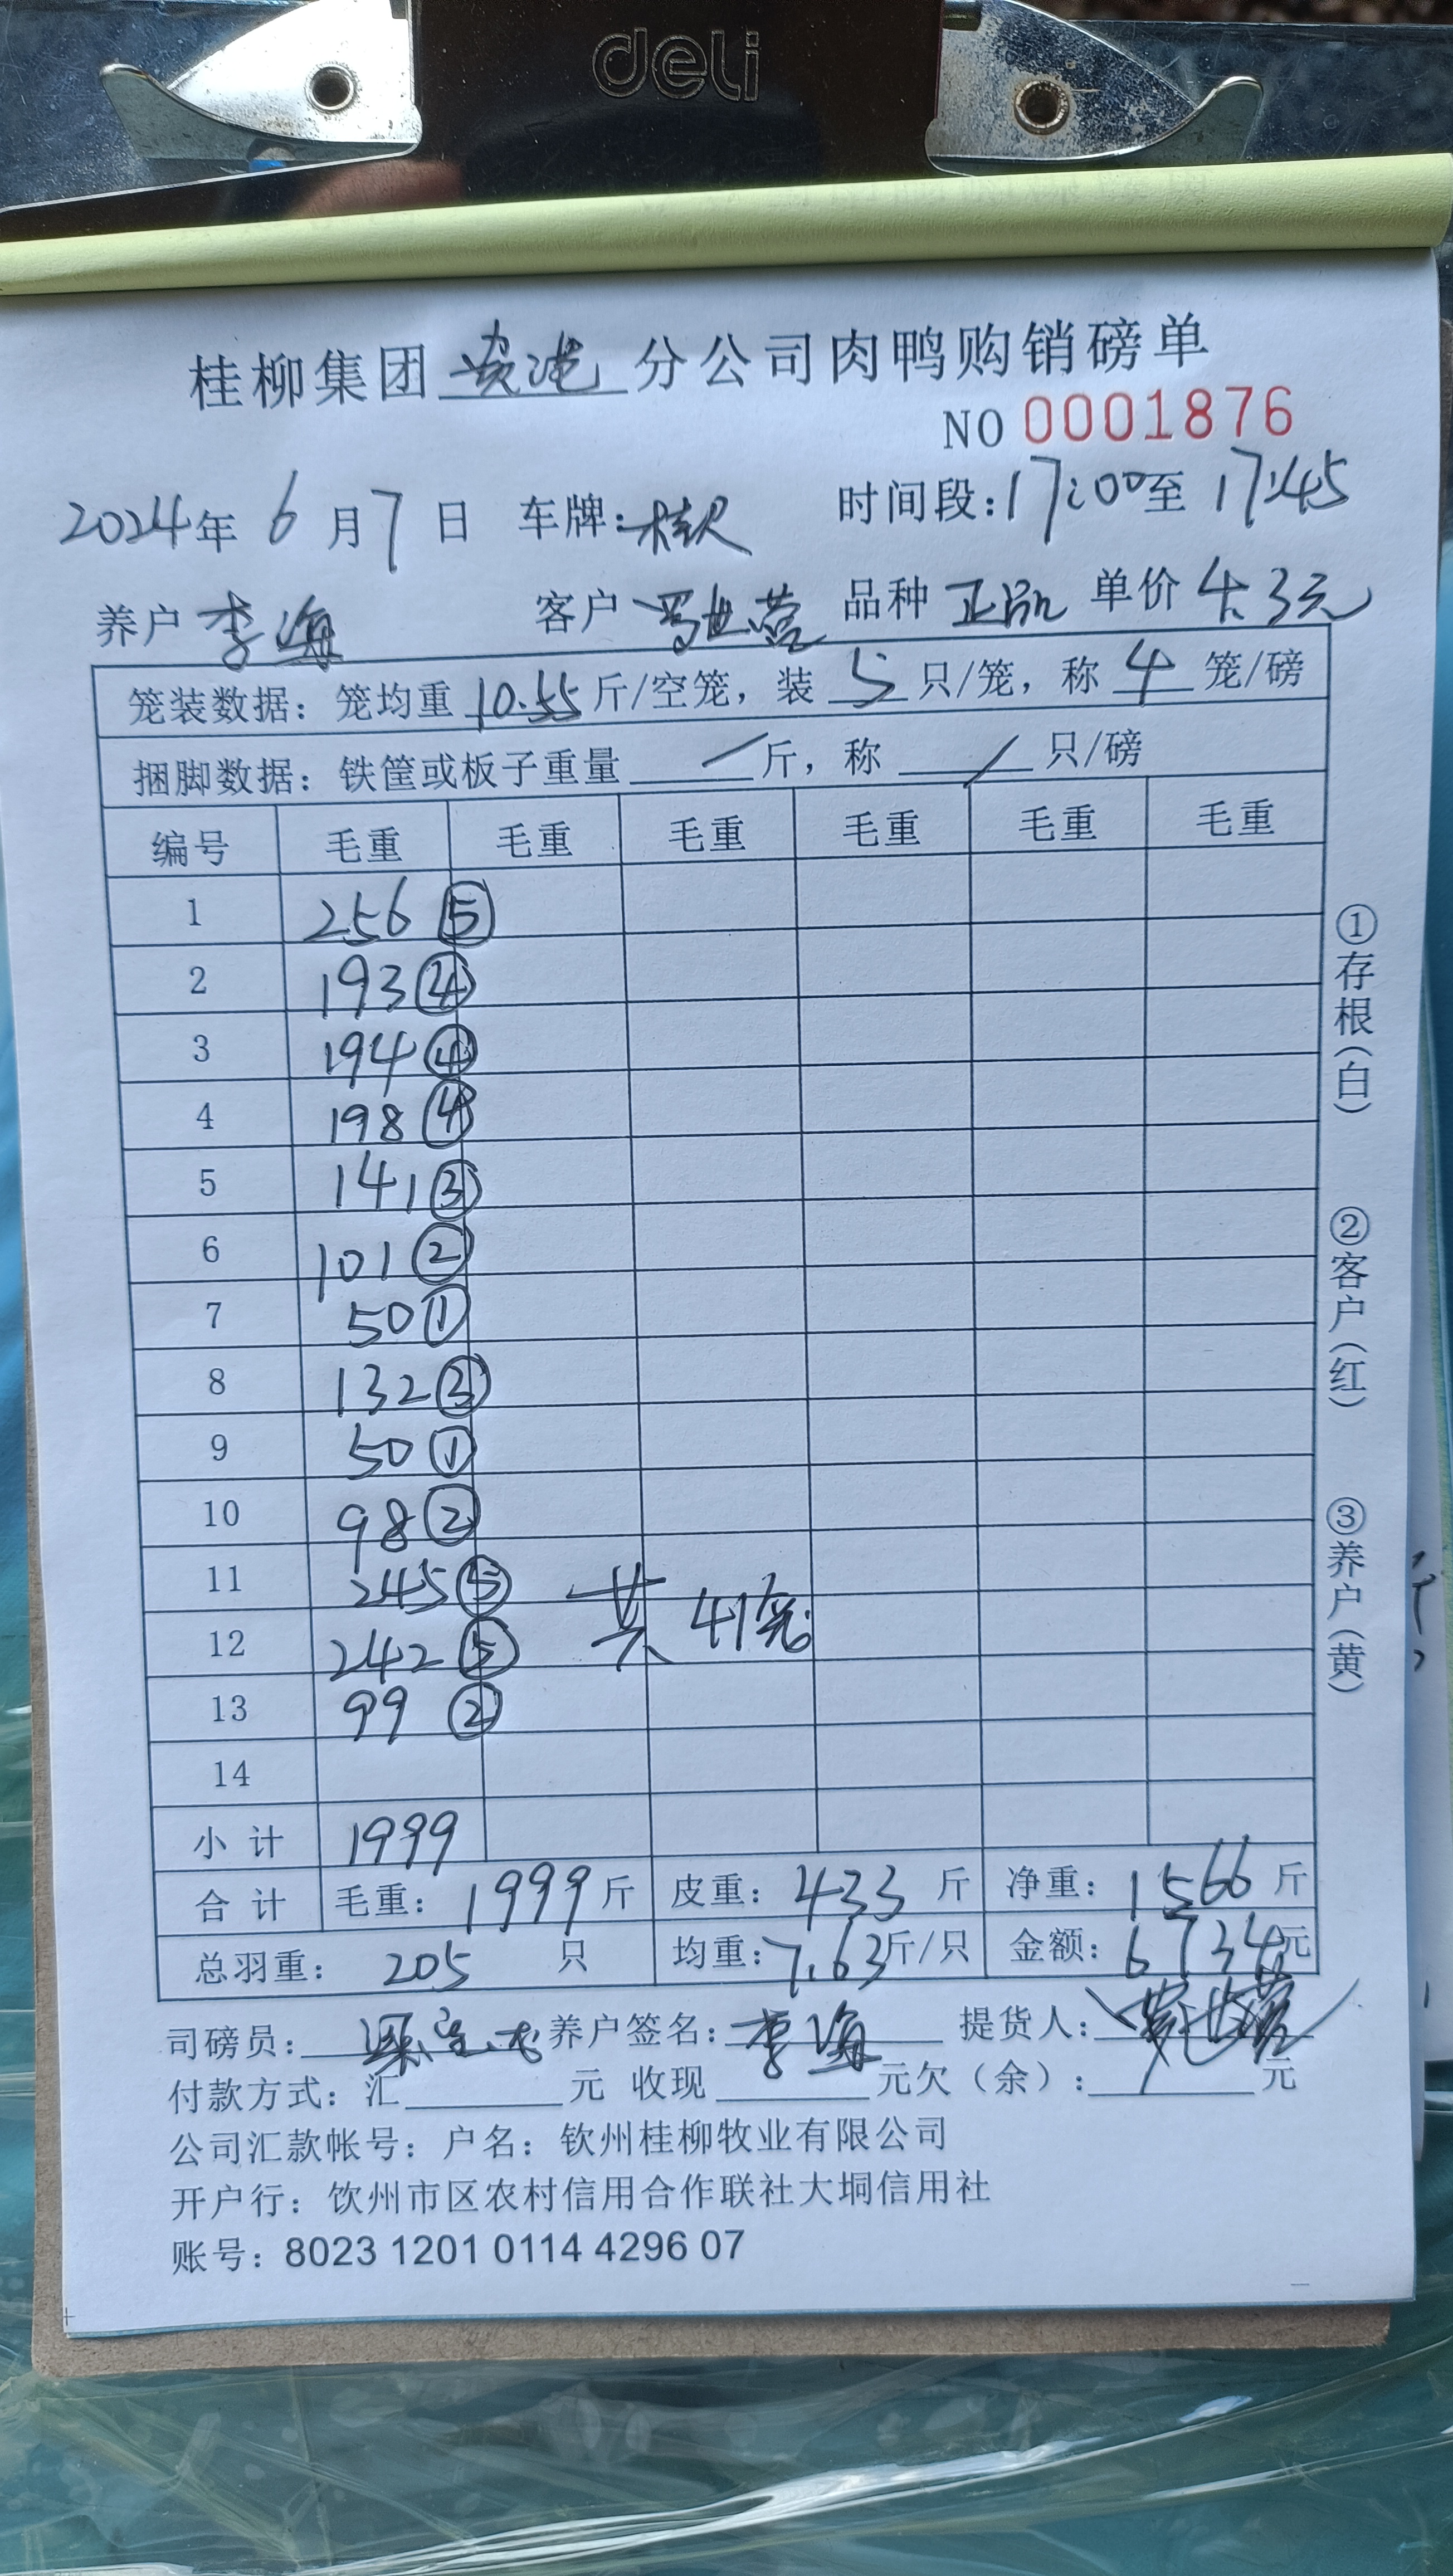 deli
桂柳集团贵港分公司肉鸭购销磅单
NO 0001876
2024年6月7日 车牌:桂R 时间段:17:00至17:45
养户 李海 客户 罗世营 品种 正品 单价 4.3元
笼装数据：笼均重 10.55 斤/空笼，装 5 只/笼，称 4 笼/磅
捆脚数据：铁筐或板子重量 / 斤，称 / 只/磅
编号 毛重 毛重 毛重 毛重 毛重 毛重
1 256 ⑤
2 193 ④
3 194 ④
4 198 ④
5 141 ③
6 101 ②
7 50 ①
8 132 ③
9 50 ①
10 98 ②
11 245 ⑤ 共 41笼
12 242 ⑤
13 99 ②
14
小计 1999
合计 毛重：1999斤 皮重：433斤 净重：1566斤
总羽重：205 只 均重:7.63斤/只 金额：6734元
司磅员： 养户签名：李海 提货人：
付款方式：汇 元 收现 元欠（余）: 元
公司汇款帐号：户名：钦州桂柳牧业有限公司
开户行：饮州市区农村信用合作联社大垌信用社
账号：8023 1201 0114 4296 07
①存根(白)
②客户(红)
③养户(黄)